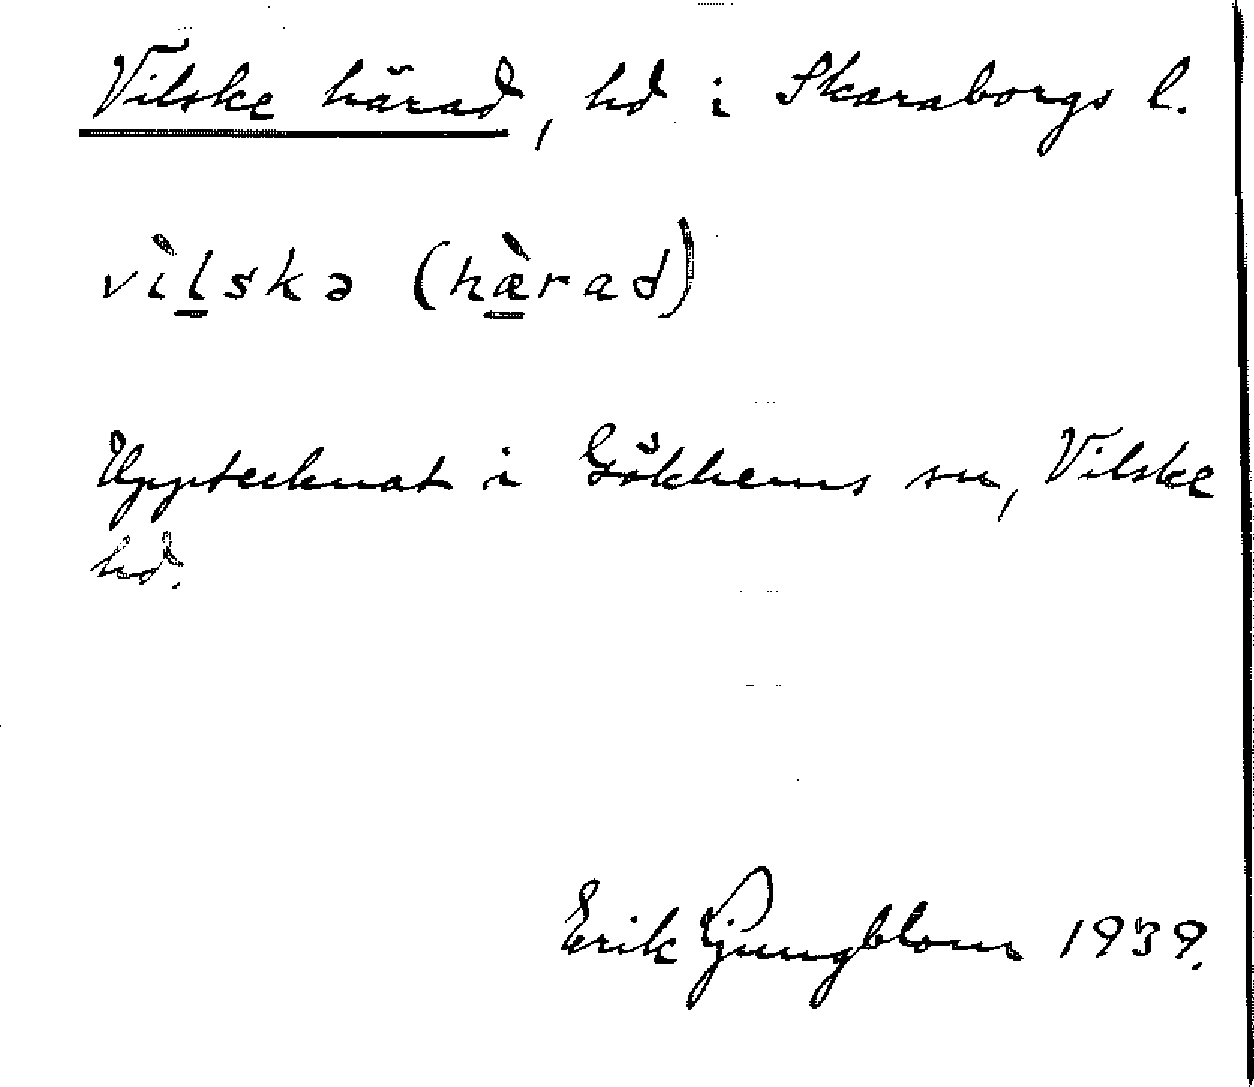 Vilske härad, hd i Skaraborgs l.
vìl̲skə (hæ̲̀rad)
Upptecknat i Gökhems sn, Vilske
hd.
Erik Ljungblom 1939.